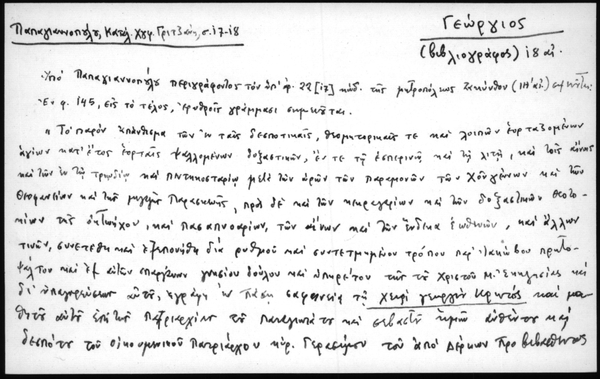 Παπαγιαννοπούλου, Κατάλ. Χγφ. Γριτζάνη, σ. 17-18
Γεώργιος
(βιβλιογράφος) 18 αἰ.
Ὑπὸ Παπαγιαννοπούλου περιγράφοντος τὸν ὑπ' ἀρ. 22 [17] κώδ. τῆς μητροπόλεως Ζακύνθου (ΙΗ' αἰ.) σημειοῦται:
Ἐν φ. 145, εἰς τὸ τέλος, ἐρυθροῖς γράμμασι σημειοῦται.
"Τὸ παρὸν ἀπάνθισμα τῶν ἐν ταῖς δεσποτικαῖς, θεομητορικαῖς τε καὶ λοιπῶν ἑορταζομένων
ἁγίων κατ' ἔτος ἑορταῖς ψαλλομένων δοξαστικῶν, ἔν τε τῇ ἑσπερινῇ καὶ τῇ λιτῇ, καὶ τοῖς αἴνοις
καὶ τῶν ἐν τῷ τριῳδίῳ καὶ πεντηκοσταρίῳ μετὰ τῶν ὡρῶν τῶν παραμονῶν τῶν Χριστουγέννων καὶ τῶν
Θεοφανείων καὶ τῆς μεγάλης Παρασκευῆς, πρὸς δὲ καὶ τῶν κεκραγαρίων καὶ τῶν δοξαστικῶν θεοτο-
κίων τῆς ὀκτωήχου, καὶ πασαπνοαρίων, τῶν αἴνων καὶ τῶν ἕνδεκα ἑωθινῶν, καὶ ἄλλων
τινῶν, συνετέθη καὶ ἐξεπονήθη διὰ ρυθμοῦ καὶ συντετμημένου τρόπου παρ' Ἰακώβου πρωτο-
ψάλτου καὶ ἐξ αὐτῶν σπαργάνων γνησίου δούλου καὶ ὑπηρέτου τῆς τοῦ Χριστοῦ Μ. Ἐκκλησίας καὶ
δι' ὑπαγορεύσεως αὐτοῦ, ἐγράφη ἐν πάσῃ σαφηνείᾳ τῇ χειρὶ γεωργίου Κρητὸς καὶ μα-
θητοῦ αὐτοῦ ἐπὶ τῆς Πατριαρχίας τοῦ παναγιωτάτου καὶ σεβαστοῦ ἡμῶν αὐθέντου καὶ
δεσπότου τοῦ οἰκουμενικοῦ Πατριάρχου κυρ. Γερασίμου τοῦ ἀπὸ Δέρκων προβιβασθέντος